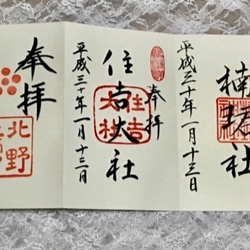 楠珺社
平成三十年一月十三日
奉拝
住吉大社
住吉
大社
平成三十年一月十三日
奉拝
北野